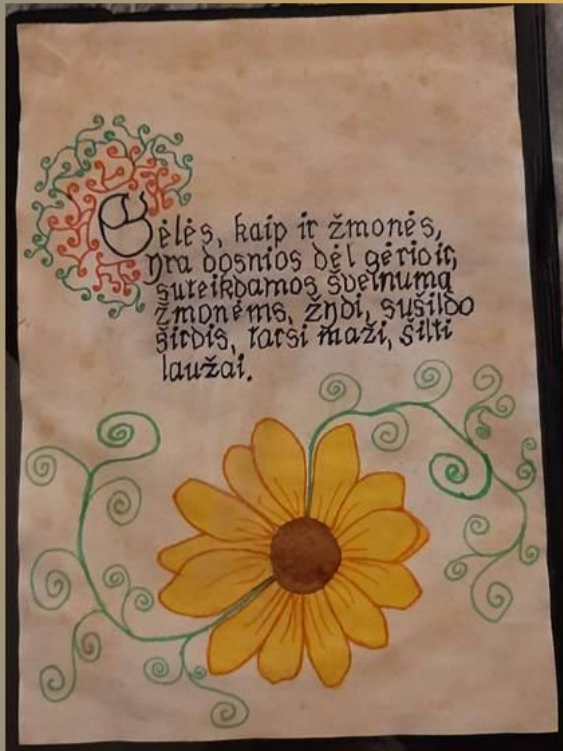 Gėlės, kaip ir žmonės,
yra dosnios dėl gėrio ir,
suteikdamos švelnumą
žmonėms, žydi, sušildo
širdis, tarsi maži, šilti
laužai.